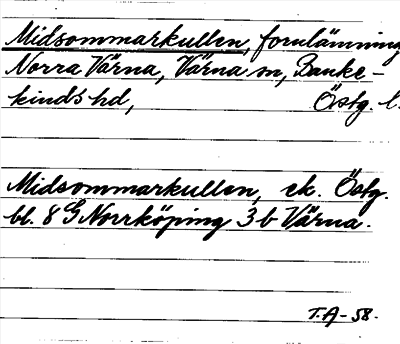 Midsommarkullen, fornlämning
Norra Värna, Värna sn, Banke-
kinds hd, Östg. l.
Midsommarkullen, ek. Östg.
bl. 8 G Norrköping 3 b Värna.
T.A-58.